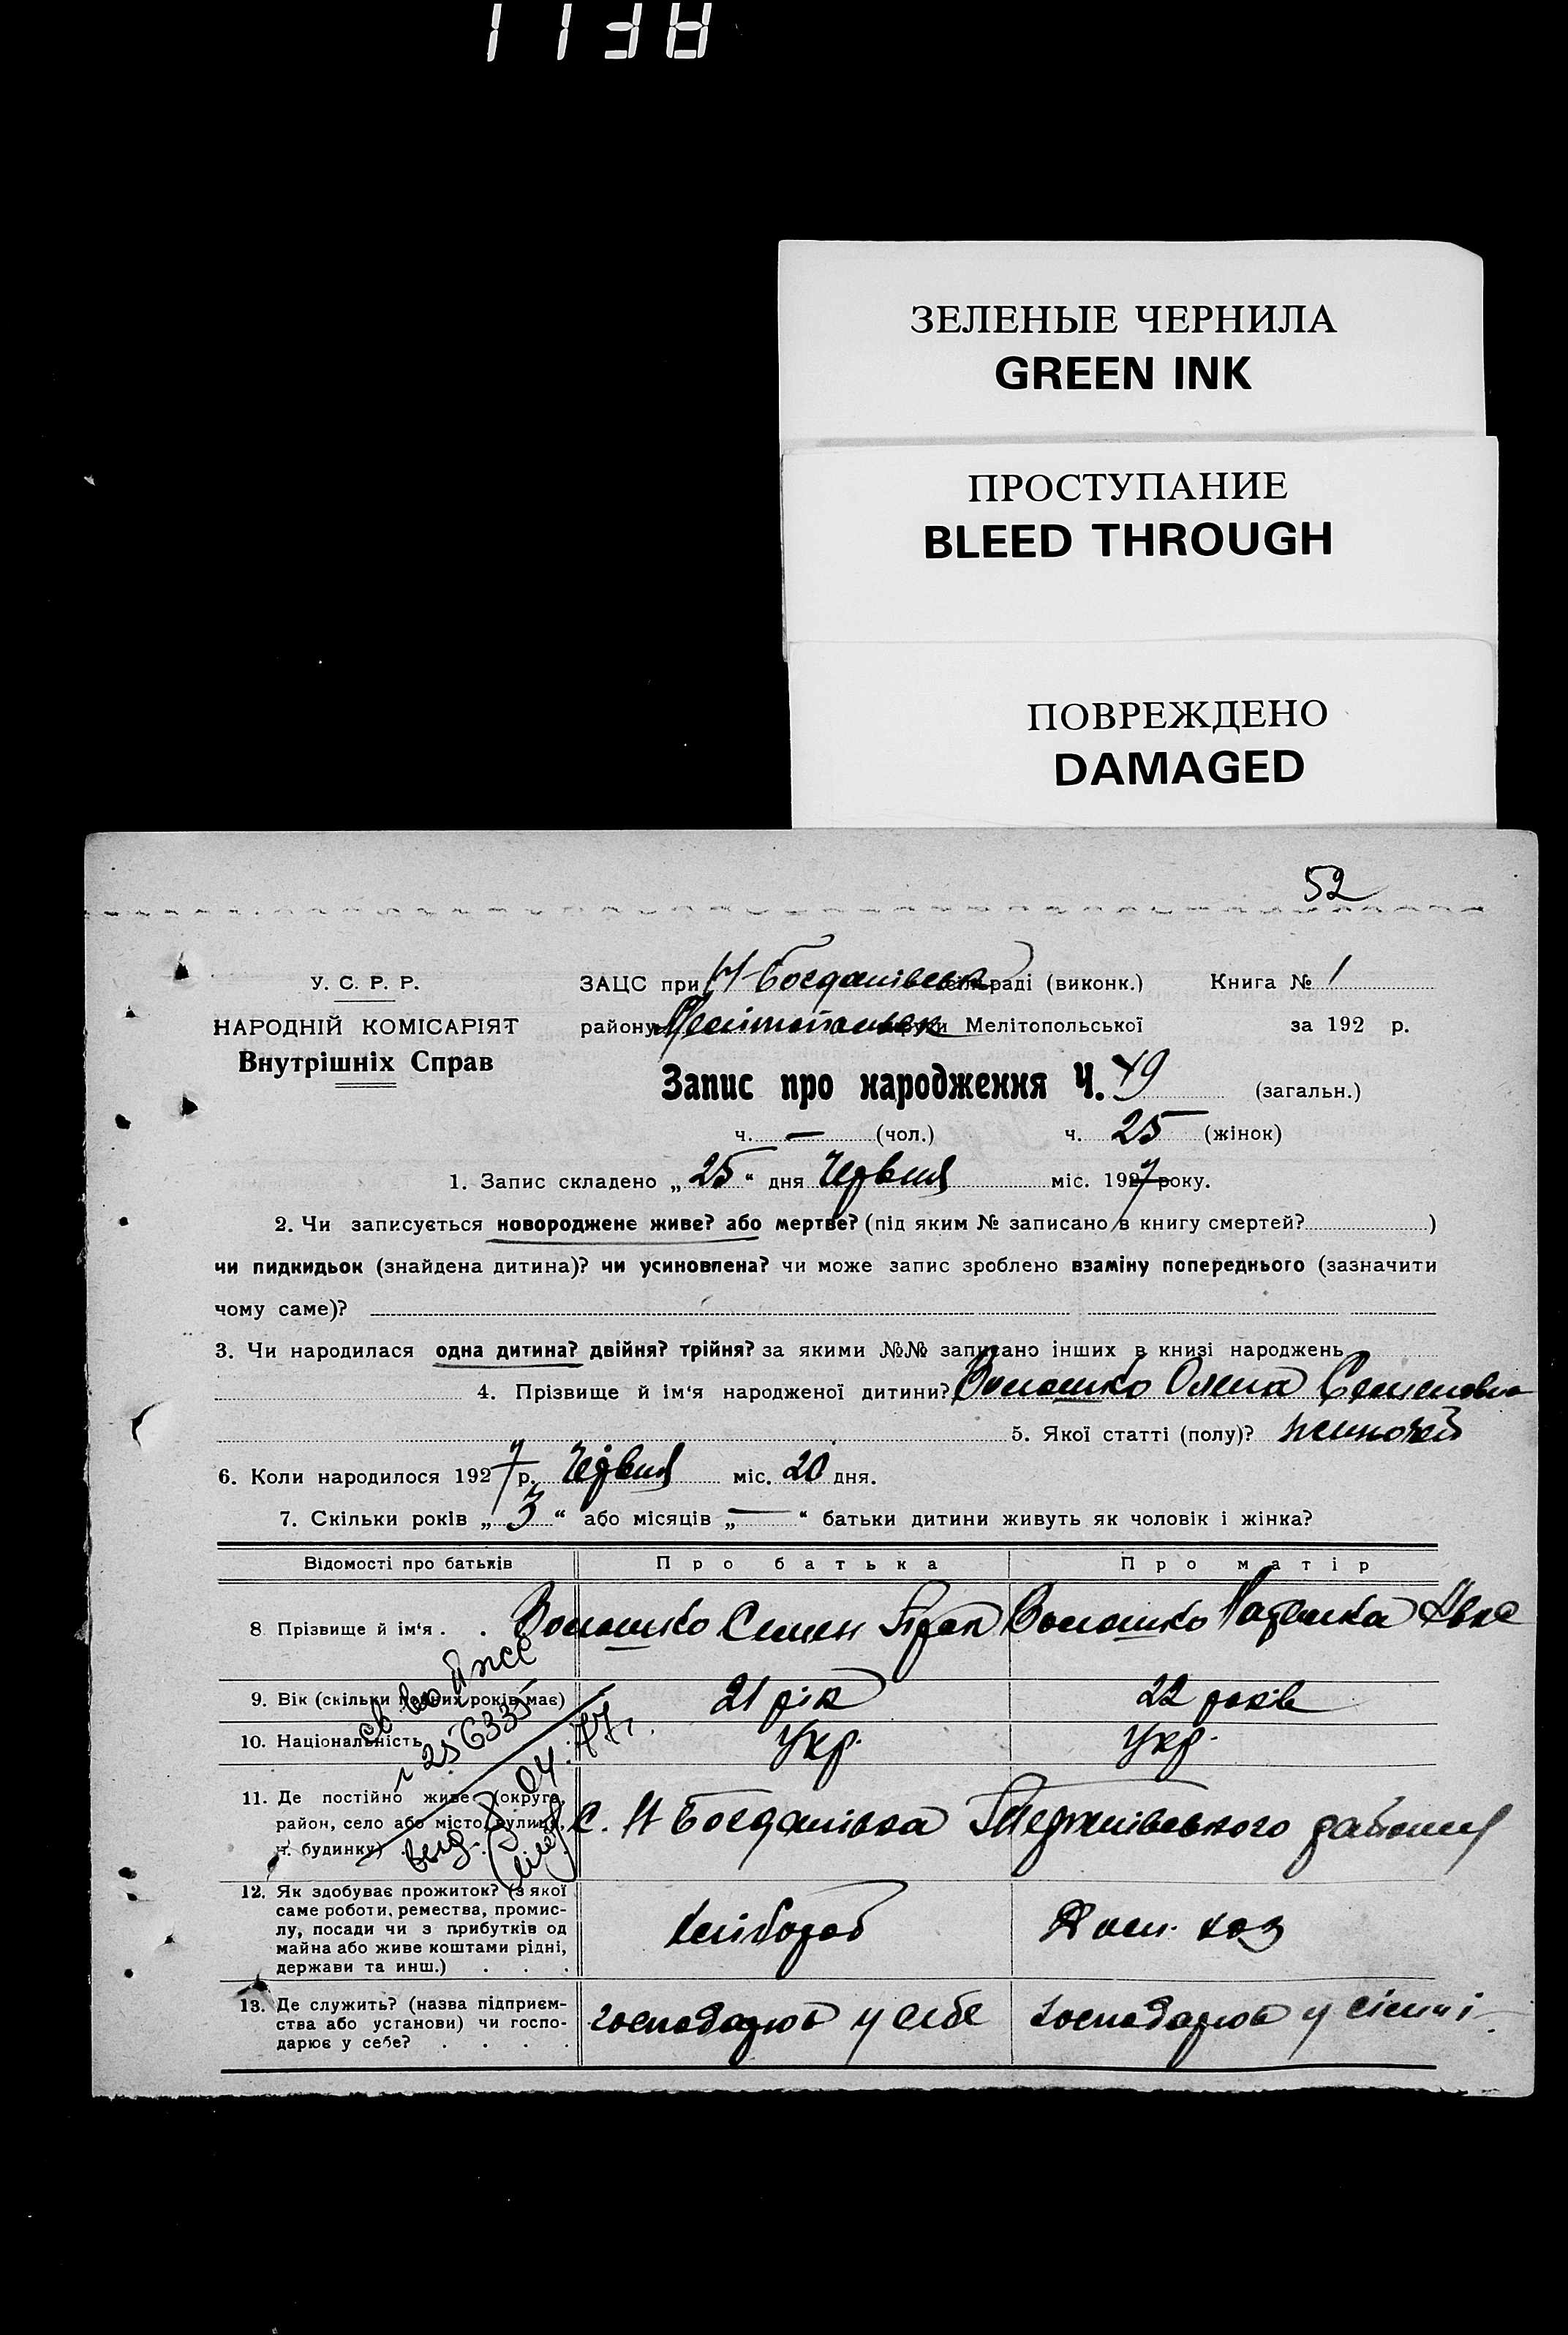 1138
ЗЕЛЕНЫЕ ЧЕРНИЛА
GREEN INK
ПРОСТУПАНИЕ
BLEED THROUGH
ПОВРЕЖДЕНО
DAMAGED
52
У. С. Р. Р.
НАРОДНІЙ КОМІСАРІЯТ
Внутрішніх Справ
ЗАЦС при Н-Богданівськ сільраді (виконк.) Книга № 1
району Мелітопольськ округи Мелітопольської за 192 р.
Запис про народження Ч. 49 (загальн.)
ч. — (чол.) ч. 25 (жінок)
1. Запис складено „25“ дня Червня міс. 1927 року.
2. Чи записується новороджене живе? або мертве? (під яким № записано в книгу смертей? )
чи пидкидьок (знайдена дитина)? чи усиновлена? чи може запис зроблено взаміну попереднього (зазначити
чому саме)?
3. Чи народилася одна дитина? двійня? трійня? за якими №№ записано інших в книзі народжень
4. Прізвище й ім'я народженої дитини? Волошко Олена Семеновна
5. Якої статті (полу)? жиночей
6. Коли народилося 1927 р. Червня міс. 20 дня.
7. Скільки років „3“ або місяців „—“ батьки дитини живуть як чоловік і жінка?
Відомості про батьків Про батька Про матір
8 Прізвище й ім'я . . Волошко Семен Волошко
9. Вік (скільки повних років має) 21 рік 22 років
10. Національність Укр. Укр.
11. Де постійно живе (округа,
район, село або місто, вулиця, с. Н Богданівка Терпнівського району
ч. будинку)
12. Як здобуває прожиток? (з якої
саме роботи, ремества, промис-
лу, посади чи з прибутків од
майна або живе коштами рідні,
держави та инш.) . . . хлібороб Дом. хоз
13. Де служить? (назва підприєм-
ства або установи) чи госпо- господарює у себе господарює у сімʼі
дарює у себе? . . . .
256335
04. 77г.